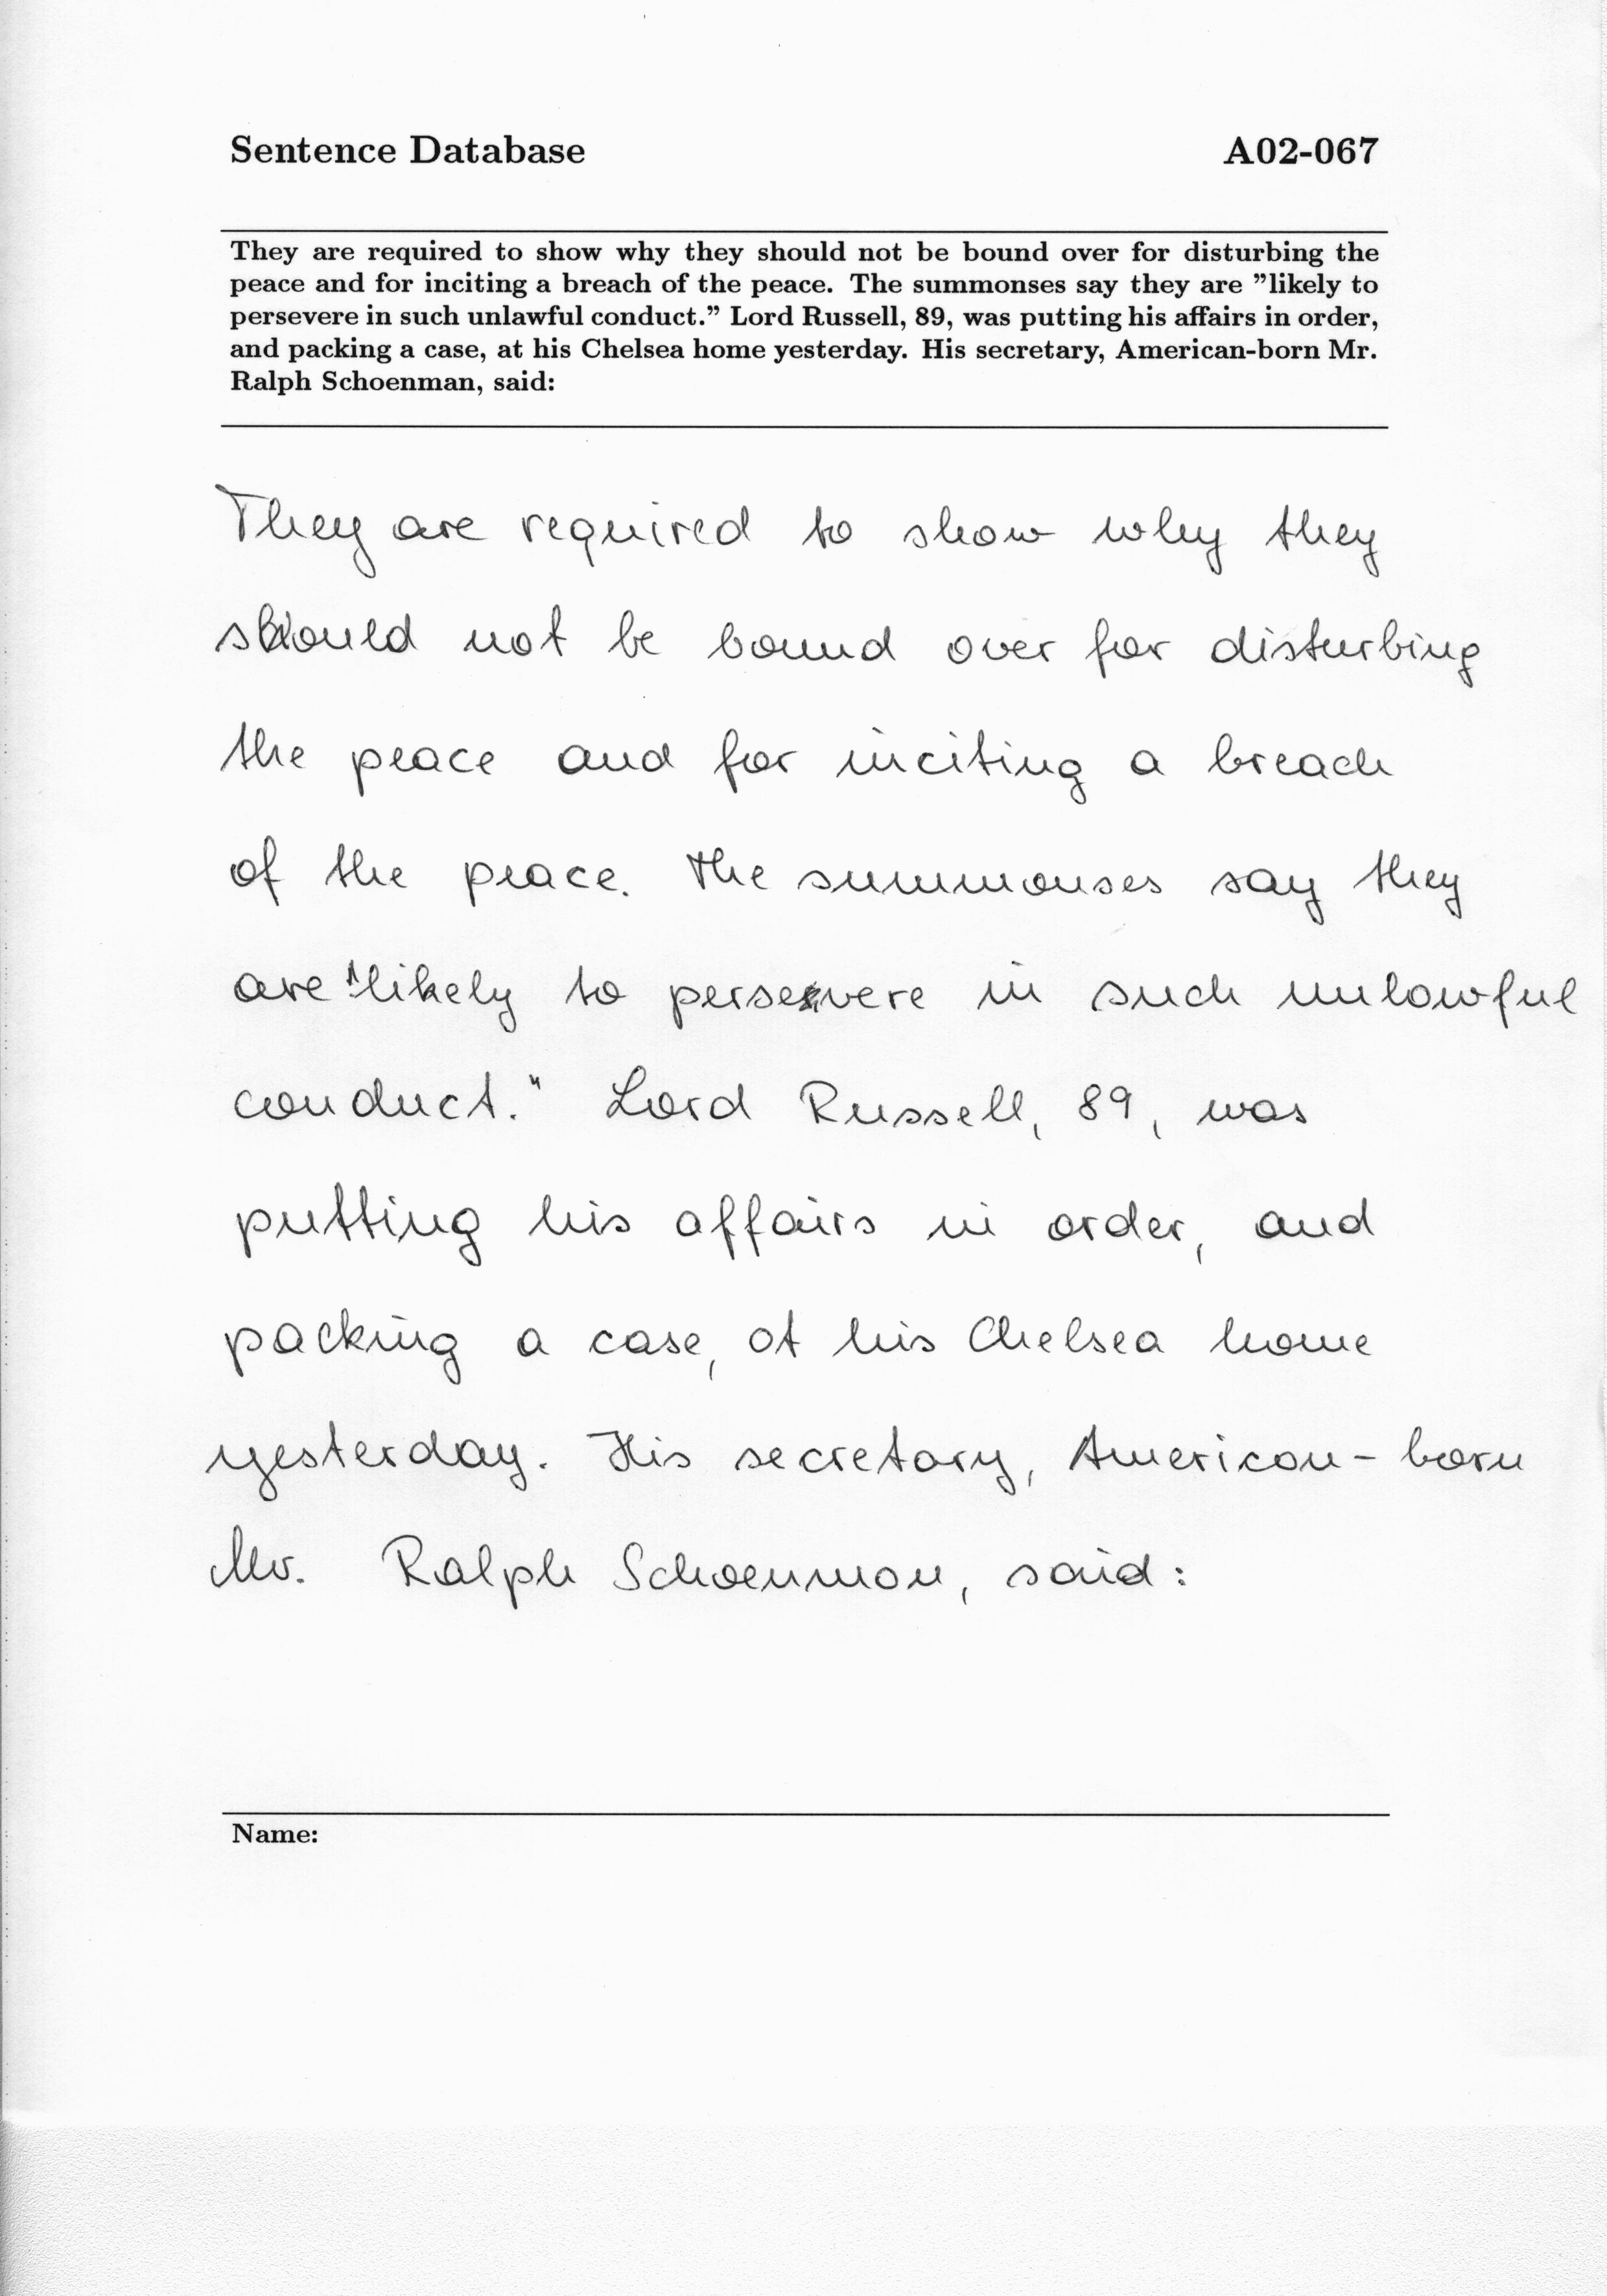 Sentence Database A02-067
They are required to show why they should not be bound over for disturbing the
peace and for inciting a breach of the peace. The summonses say they are ”likely to
persevere in such unlawful conduct.” Lord Russell, 89, was putting his affairs in order,
and packing a case, at his Chelsea home yesterday. His secretary, American-born Mr.
Ralph Schoenman, said:
They are required to show why they
should not be bound over for disturbing
the peace and for inciting a breach
of the peace. The summonses say they
are "likely to persevere in such unlawful
conduct." Lord Russell, 89, was
putting his affairs in order, and
packing a case, at his Chelsea home
yesterday. His secretary, American-born
Mr. Ralph Schoenman, said:
Name: